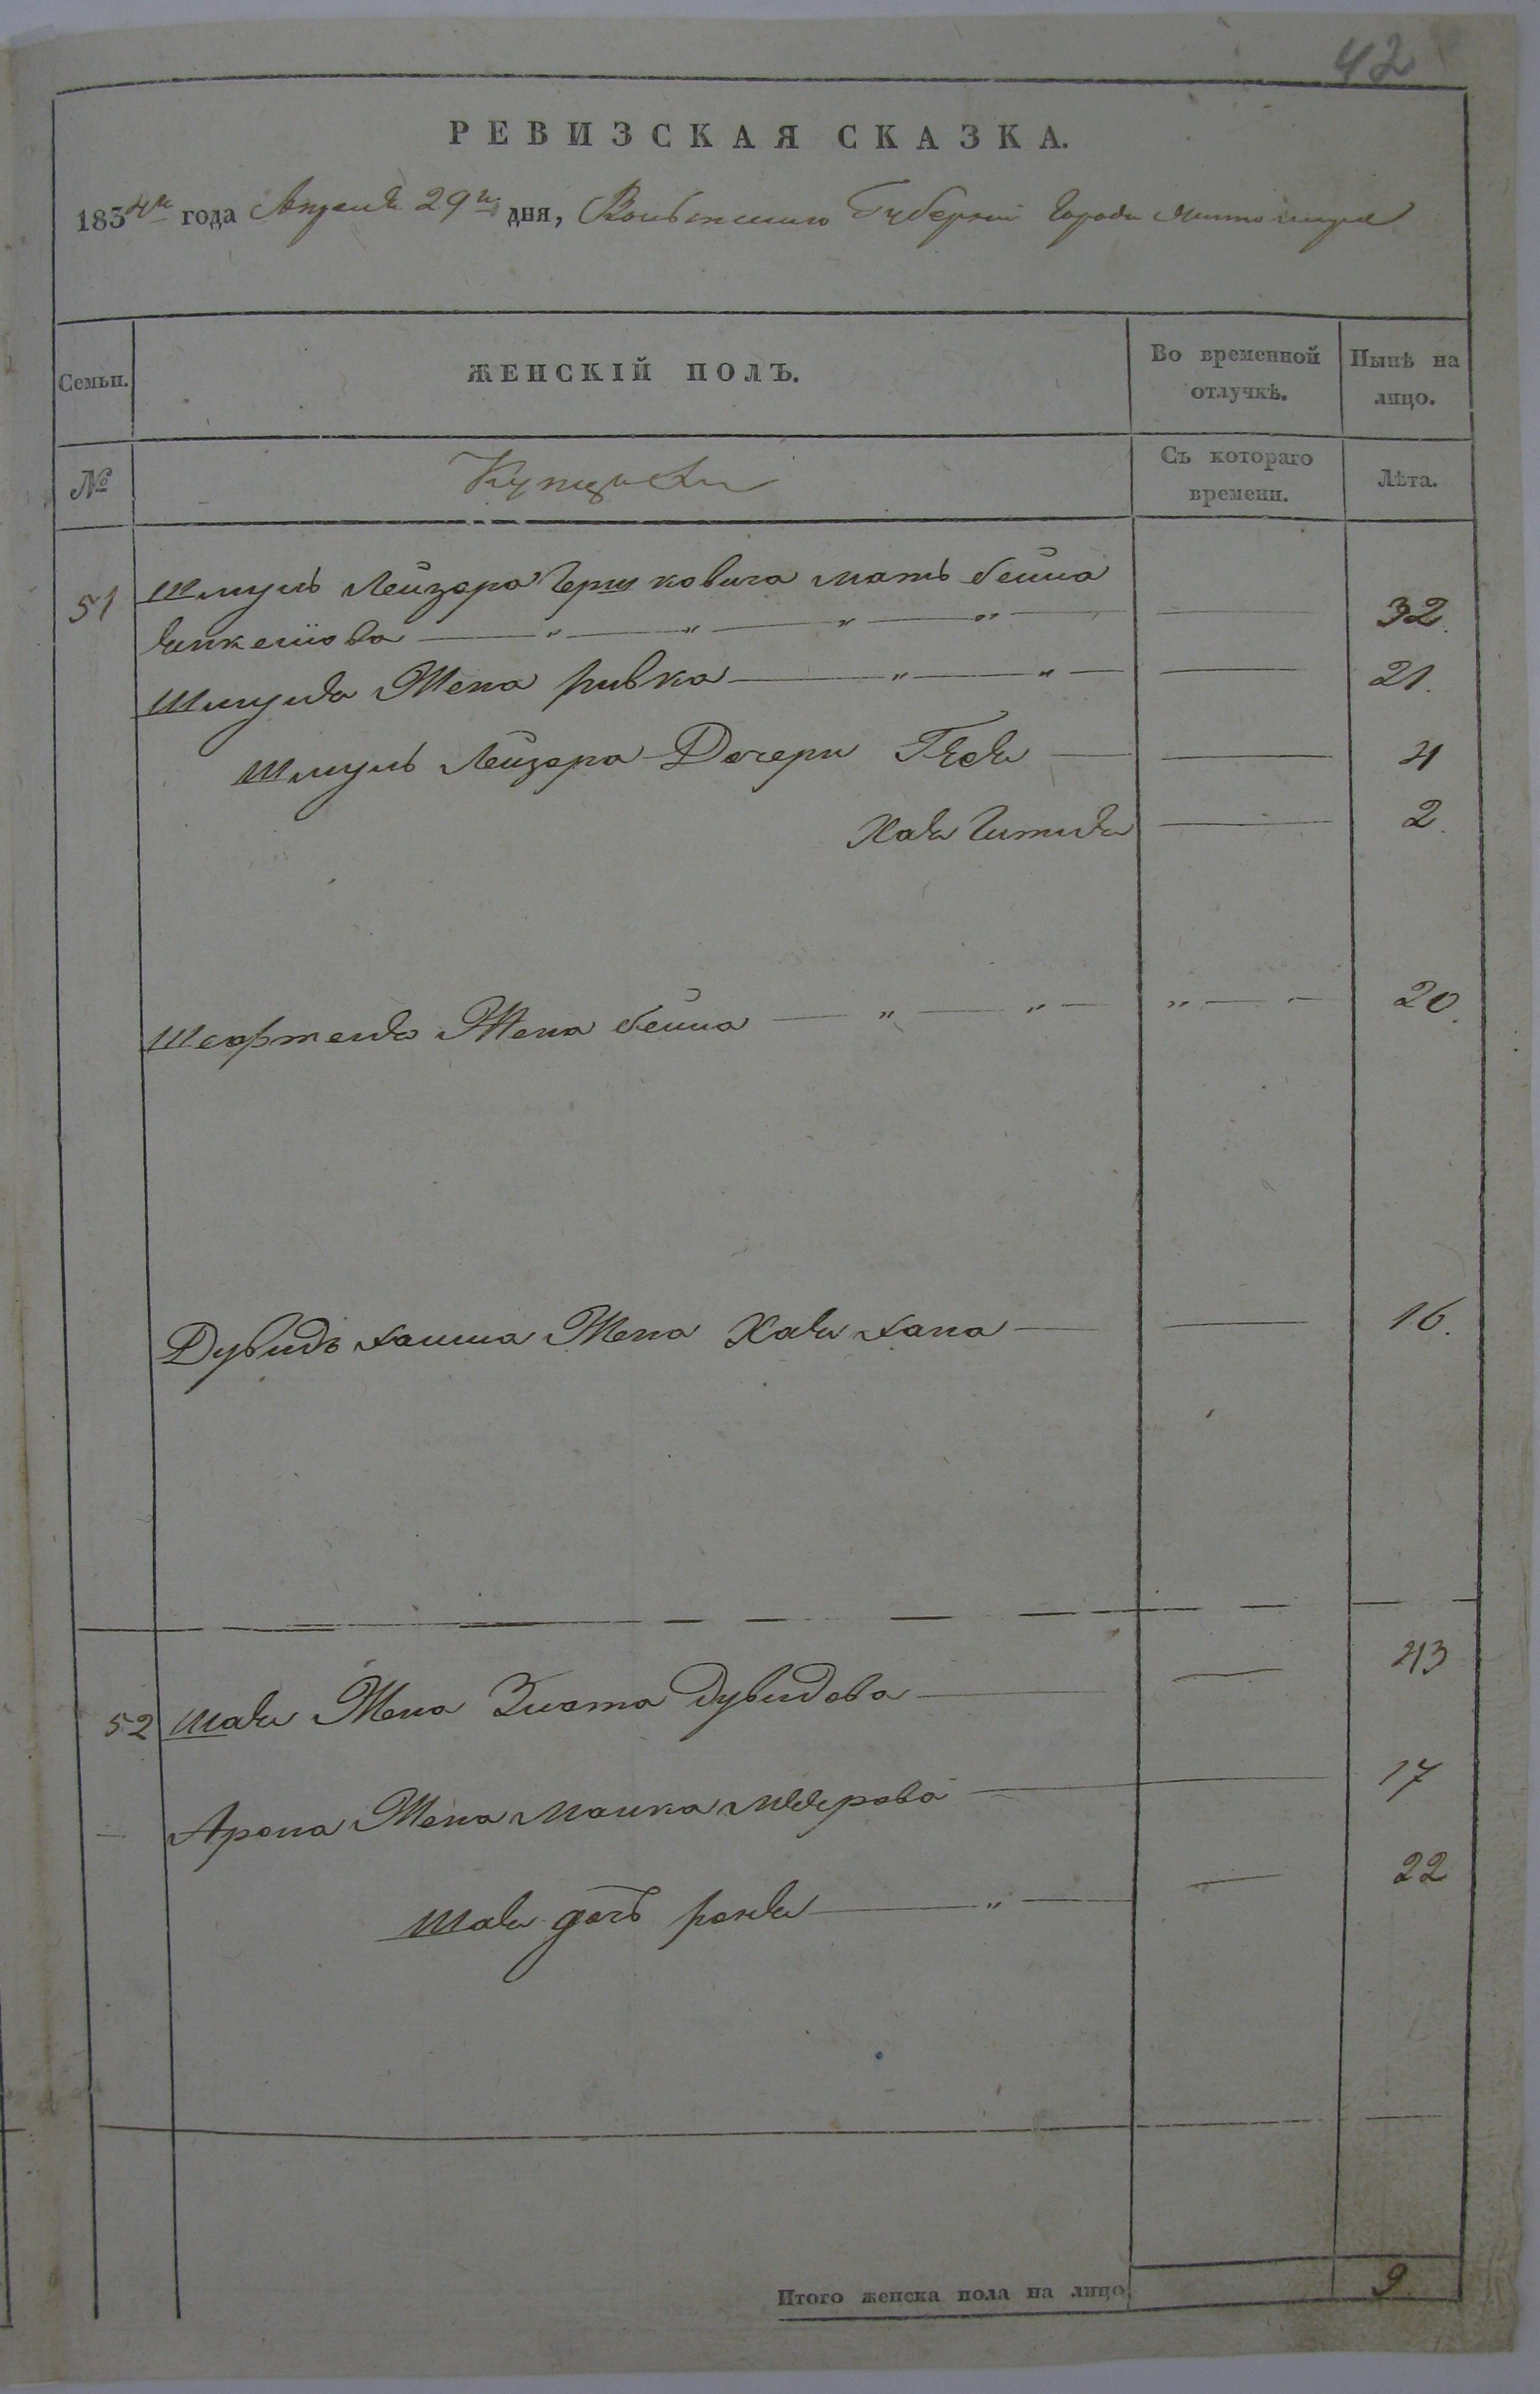 42
РЕВИЗСКАЯ СКАЗКА.
1834го года Апреля 29го дня, Волынской Губернии Города Житомира
Семьи. ЖЕНСКІЙ ПОЛЪ. Во временной отлучкѣ. Нынѣ на лицо.
№ Съ котораго времени. Лѣта.
51 Шмуль Лейзера Гершковича мать бейла
Янкелиова — „ — „ — „ — „ — — 32.
Шмуля Жена ривка — „ — „ — — 21.
Шмуль Лейзера Дочери — — 4
Хая Гитля — 2.
Жена бейла — „ — „ — „ — 20.
Дувидъ хаима Жена Хая хана — — 16.
52 Шаи Жена Злота Дувидова — — 43
— Арона Жена Малка Меерова — — 17
Шаи дочь — „ — — 22
Итого женска пола на лицо 9